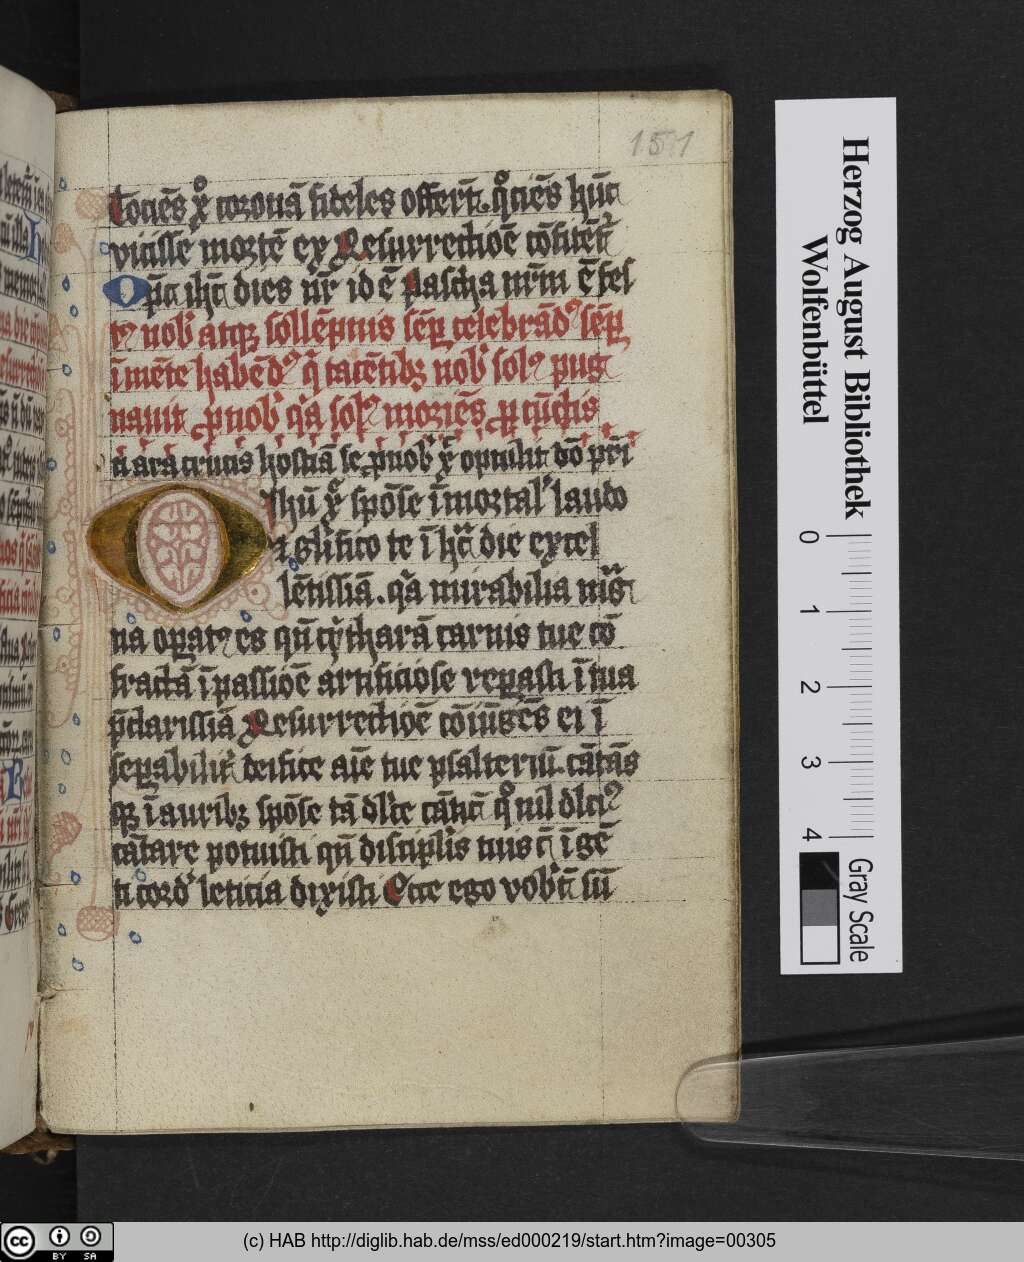 151
Tociēs xp̄ coronā fideles offerūt. qͦciēs hūc
vicisse mortē ex Resurrectiōē cōfitēt
Op̄a ihū dies nr̄ id ē pascha nrm̄ ē fes
tꝰ nob̓ atqꝫ sollēpnis sēꝑ celebrādꝰ sēꝑ
ī mēte habēdꝰ q̄ tacētibꝫ nob̓ solꝰ pug
nauit ꝓ nob̓ q̓a solꝰ moriēs ꝑ cūctis
ī ara crucis hostiā se ꝓ nob̓ xp̄ optulit dō pr̄i
O Ihū xp̄ spōse īmortal̓ laudo
⁊ gl̓ifico te ī hac die excel
lētissiā. q̓a mirabilia mag
na opatꝰ es qn̄ cytharā carnis tue cō
fractā ī passiōē artificiose reꝑasti ī tua
p̄clarissiā Resurrectiōē cōiūgēs ei ī
seꝑabilit̓ deifice aīe tue psalteriū. cātās
qꝫ ī auribꝫ spōse tā dl̓ce cāticū qͦ nil dl̓ciꝰ
cātare potuisti qn̄ discipl̓is tuis cū īgē
ti cord̓ leticia dixisti Ecce ego vob̓cū sū
Herzog August Bibliothek
Wolfenbüttel
0 1 2 3 4
Gray Scale
cc BY SA
(c) HAB http://diglib.hab.de/mss/ed000219/start.htm?image=00305